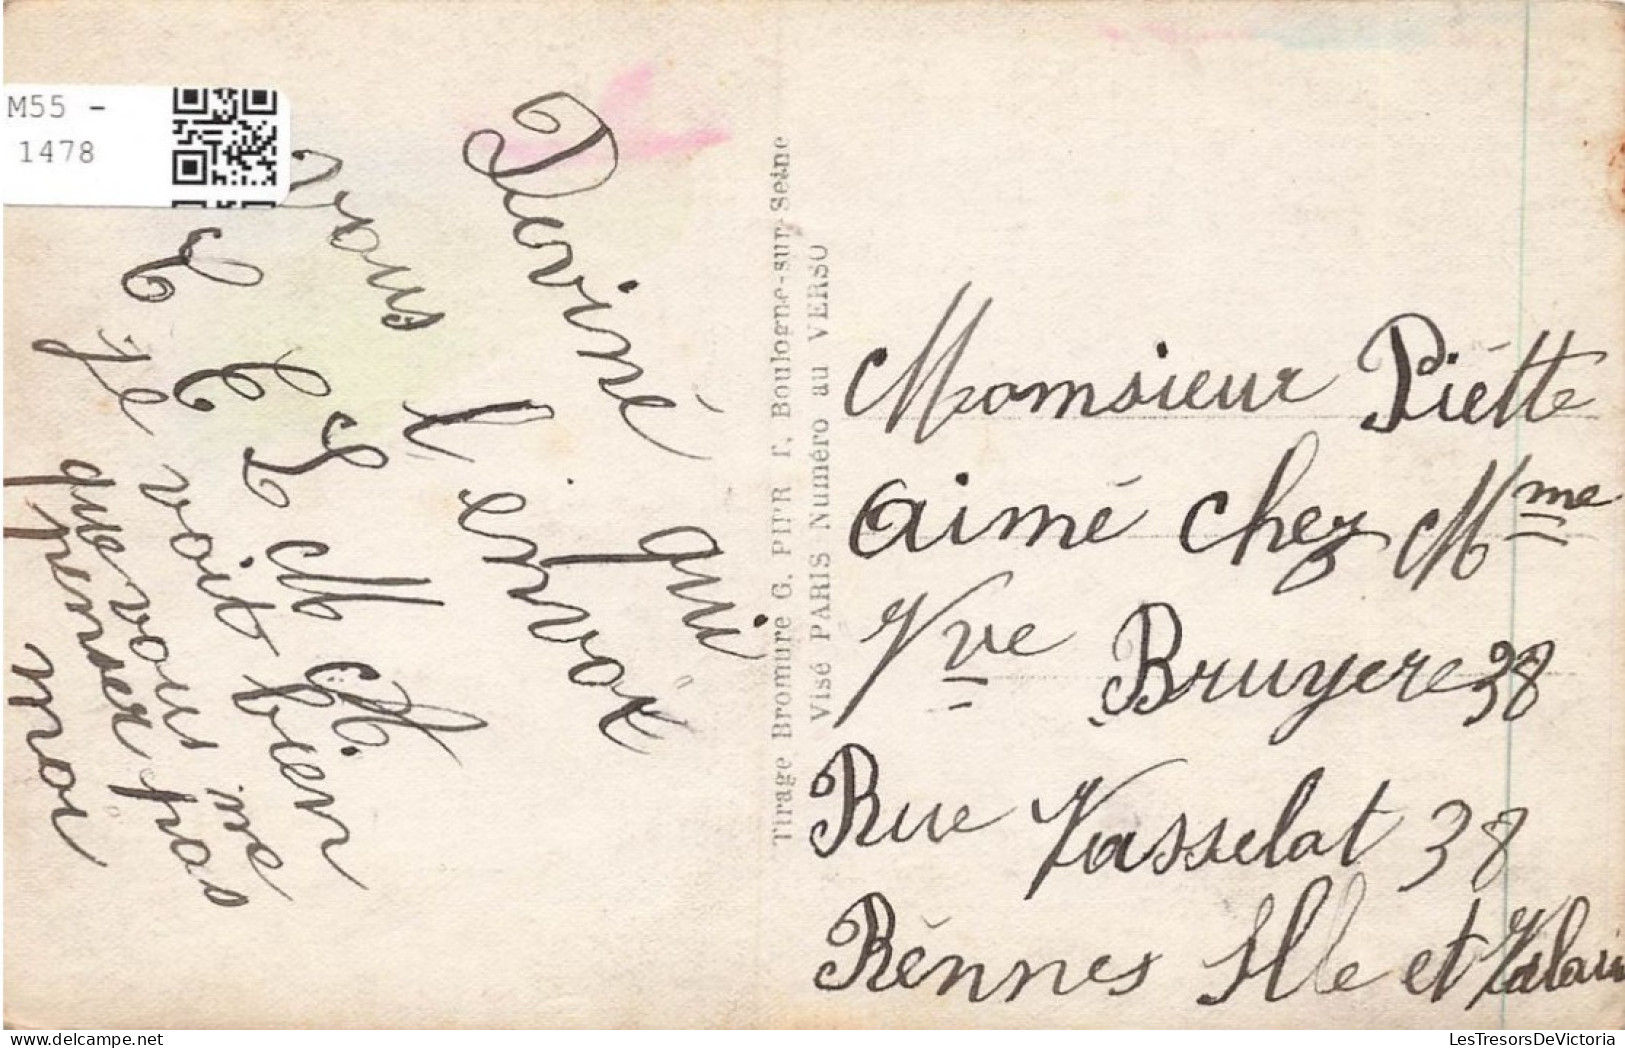 M55 -
1478
Deviné qui
vous l'envoi
C E L M H.
je voit bien
que vous me
penser pas
moi
Tirage Bromure G. PIPR r. Boulogne-sur-Seine
Visé PARIS Numéro au VERSO
Monsieur Piétte
aimé chez Mme
Vve Bruyere 38
Rue Vasselot 38
Rénnes Ille et Vilain
LesTresorsDeVictoria